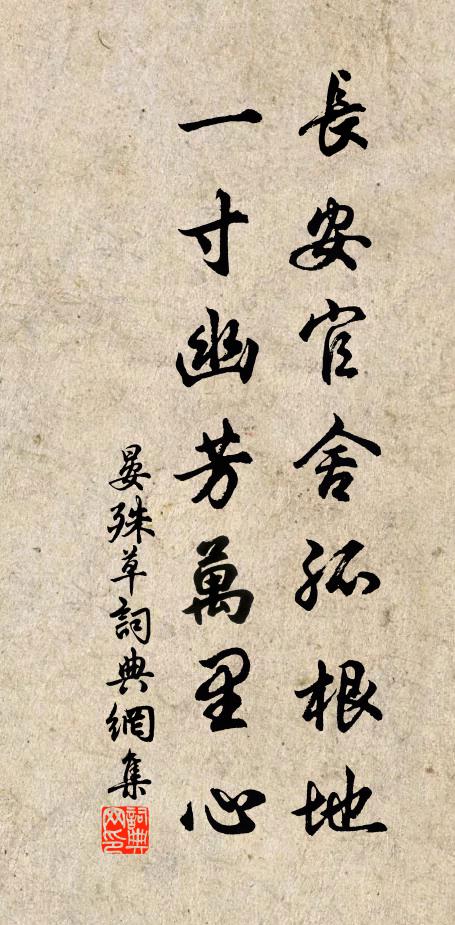 長安官舍孤根地
一寸幽芳萬里心
晏殊草詞典網集
詞典网印